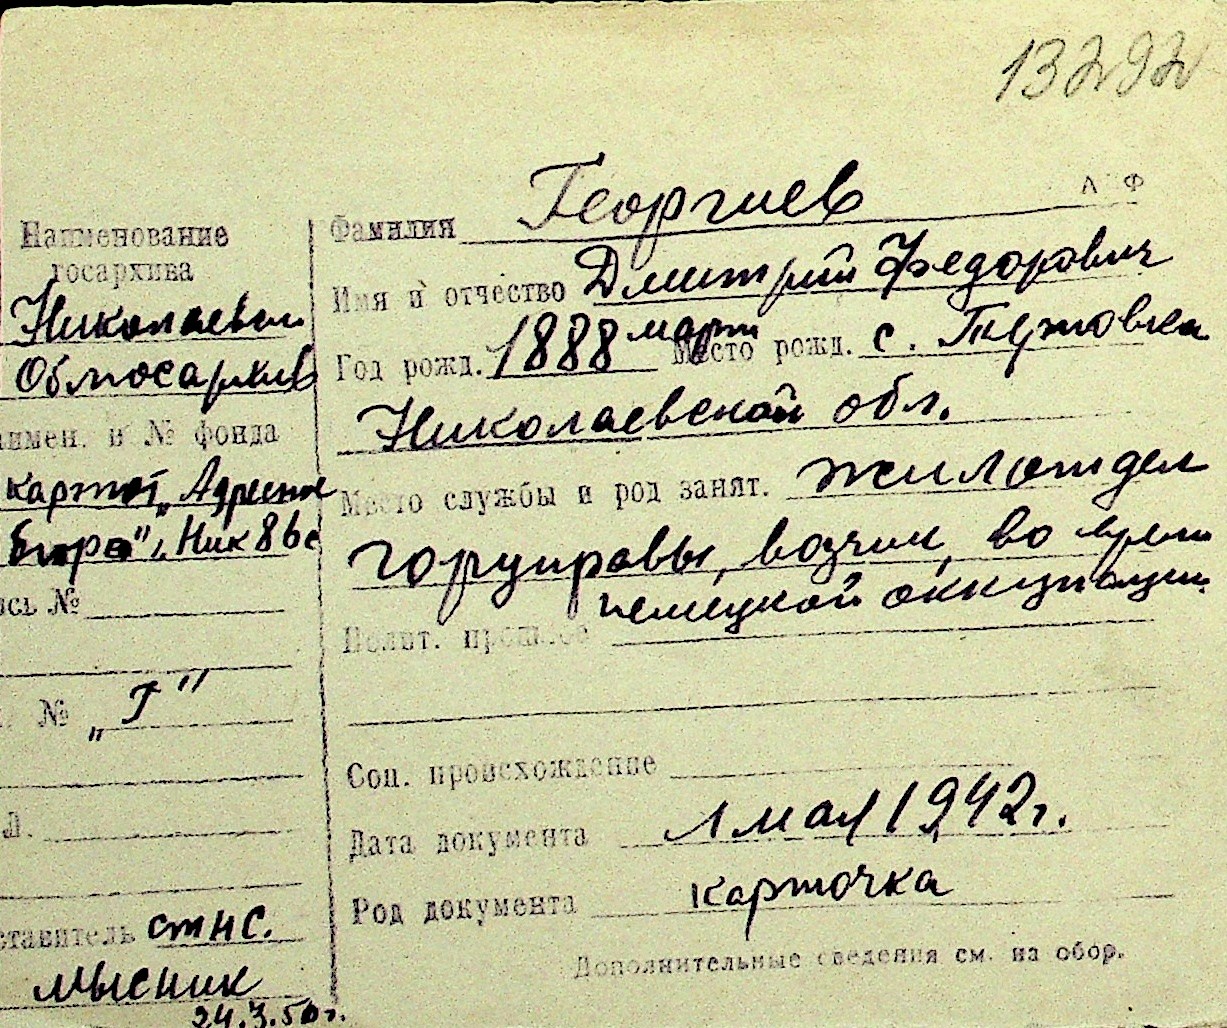 13292
Георгиев
Наименование
госархива
Николаевск.
Облгосархив
аимен. и № фонда
картот. „Адресное
бюро",
ись №
№ „Г"
Л.
ставитель стнс.
Мысник
24.3.50г.
Фамилия
Имя и отчество Дмитрий Федорович
Год рожд. 1888 март Место рожд. с.
Николаевской обл.
Место службы и род занят. жилотдел
горуправы, возчик, во время
немецкой оккупации.
Полит. прошлое
Соц. происхождение
Дата документа 1 мая 1942г.
Род документа карточка
Дополнительные сведения см. на обор.